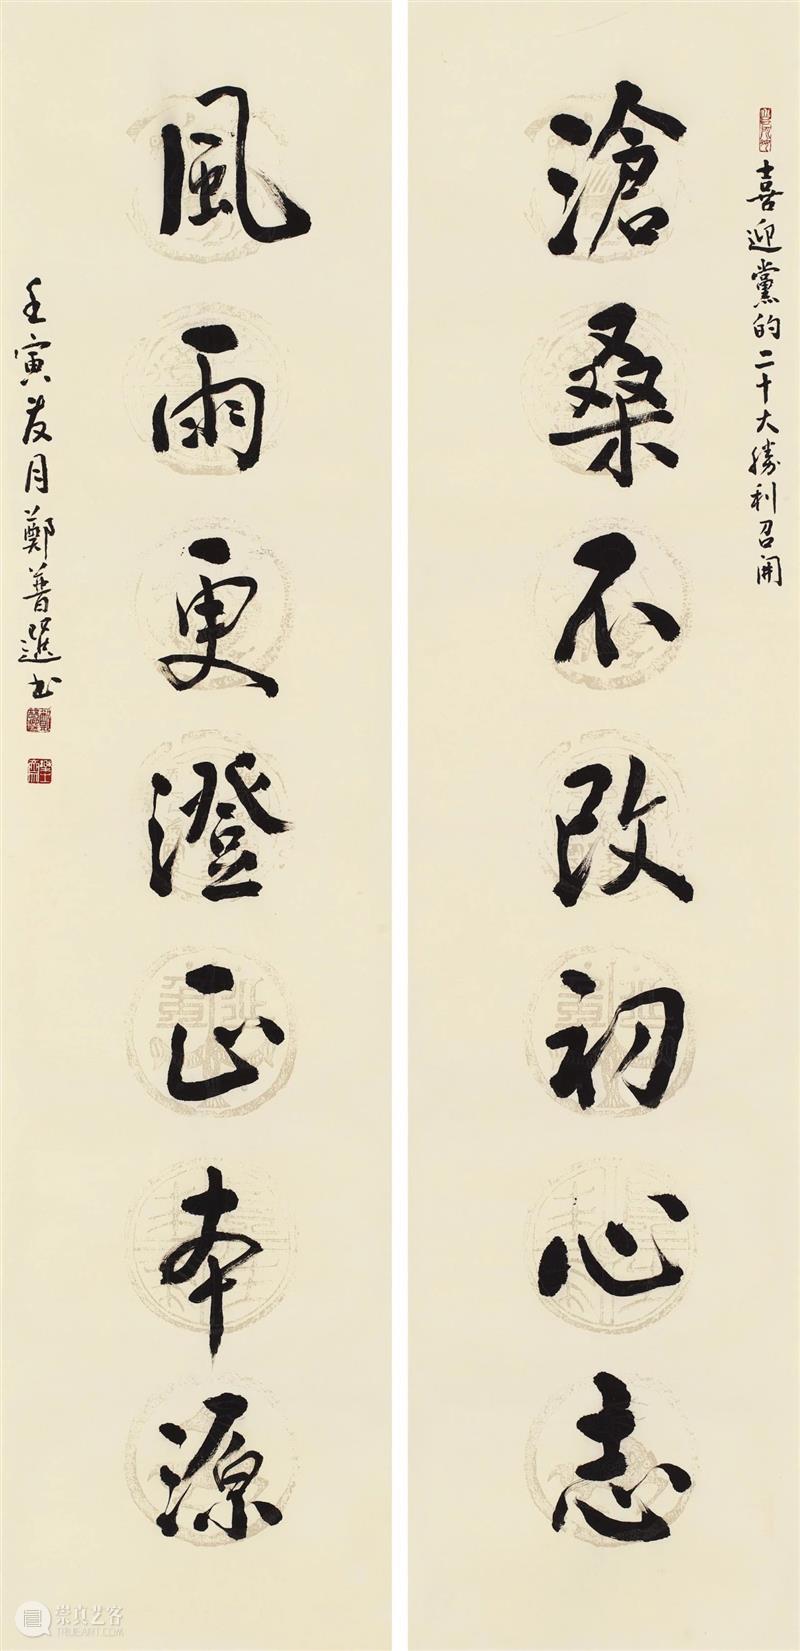 喜迎黨的二十大勝利召開
滄桑不改初心志
風雨更澄正本源
壬寅友月鄭普選书
崇真艺客
WWW.TRUEART.COM